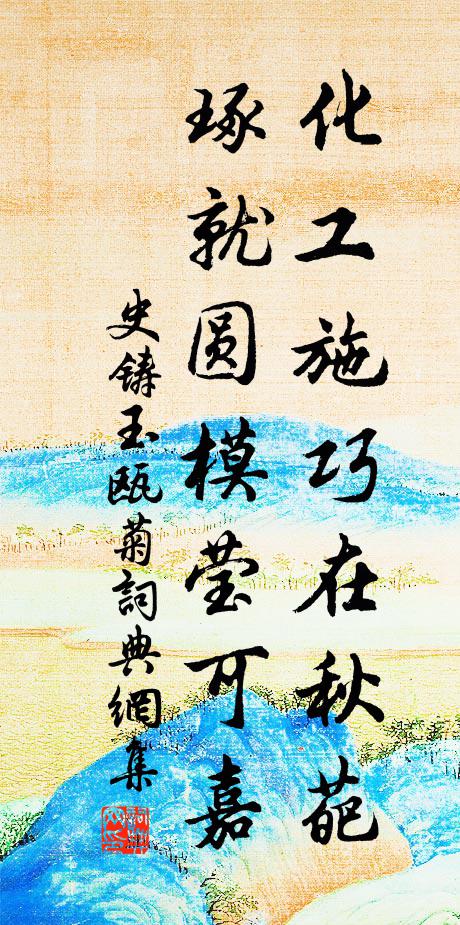 化工施巧在秋葩
琢就圆模莹可嘉
史铸玉瓯菊詞典網集